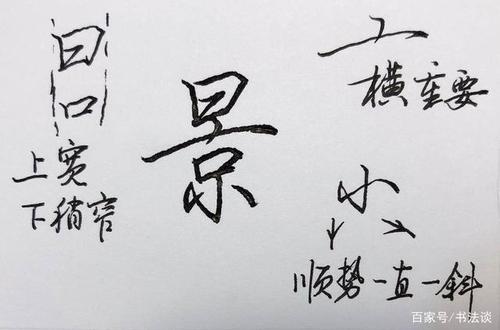 日
口
上宽
下稍窄
景
亠
横重要
小
顺势一直一斜
百家号/书法谈